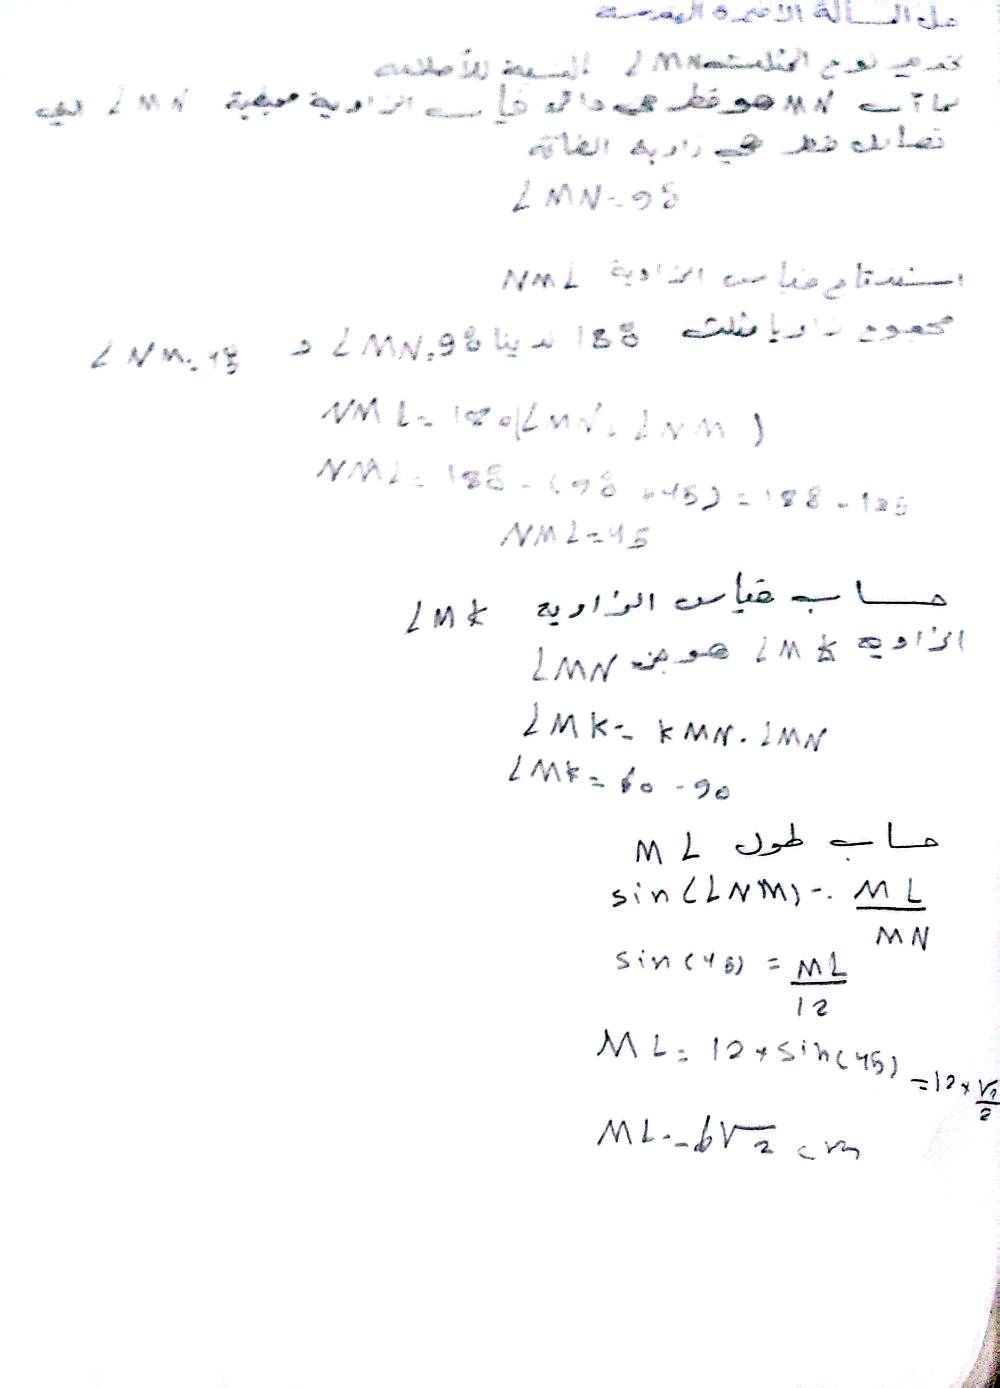 حل المسألة الأخيرة الهندسة
تحديد نوع المثلث LMN النسبة للأضلاعه
بما أن MN هو قطر هي دائرة قياس الزاوية محيطية LMN التي
تقابل قطر هي زاوية القائمة
LMN = 90
استنتاج قياس الزاوية NML
مجموع زاويا مثلث 180 لدينا LMN.90 و LNM.45
NML = 180(LMN. LNM)
NML = 180 - (90 + 45) = 180 - 135
NML = 45
حساب قياس الزاوية LMK
الزاوية LMK هو من LMN
LMK = KMN. LMN
LMK = 60 - 90
حساب طول ML
sin(LNM) = ML/MN
sin(45) = ML/12
ML = 12 × sin(45) = 12 × √2/2
ML = 6√2 cm